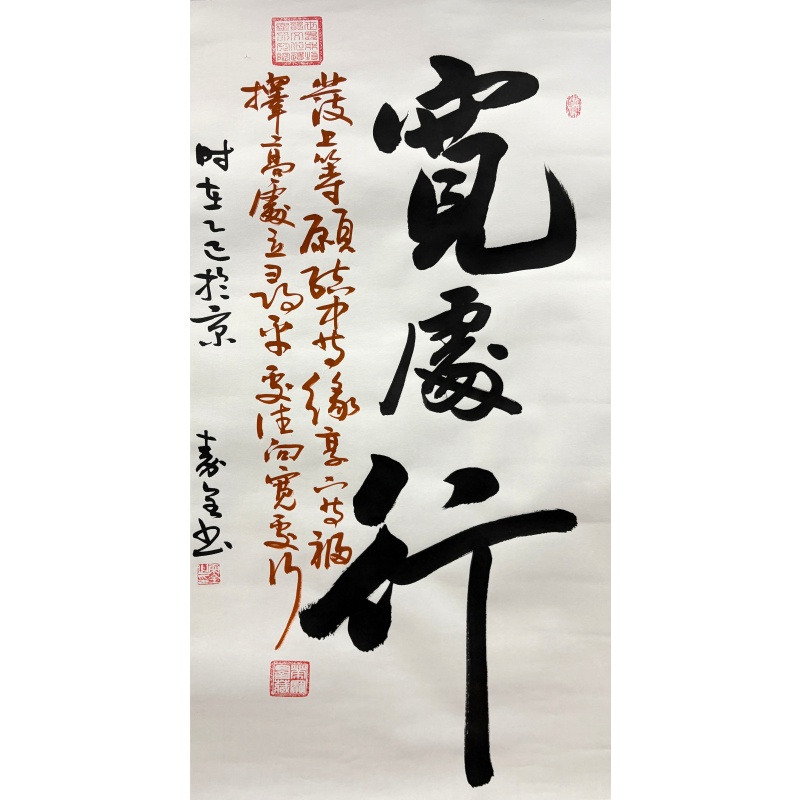 寬處行
發上等願結中等緣享下等福
擇高處立尋平處住向寬處行
时在乙巳於京
寿全书